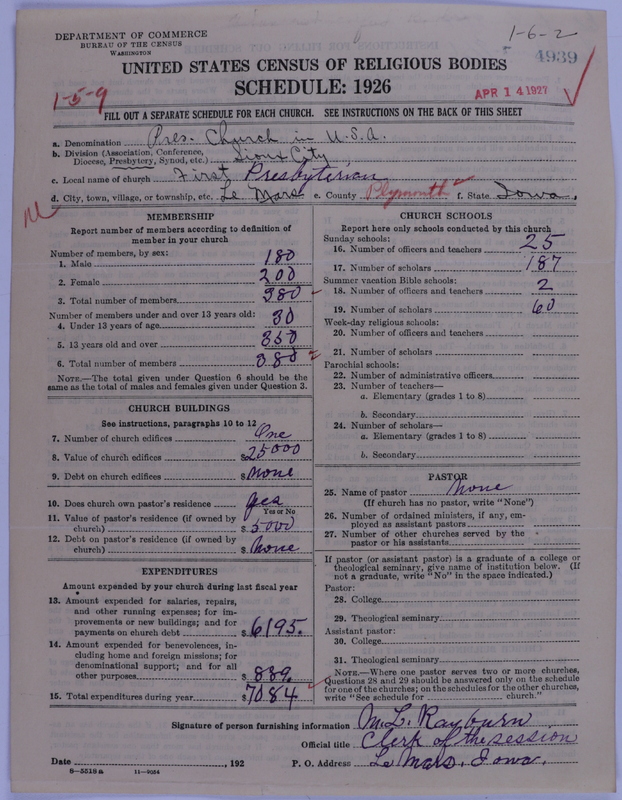 DEPARTMENT OF COMMERCE
BUREAU OF THE CENSUS
WASHINGTON
1-6-2
4939
UNITED STATES CENSUS OF RELIGIOUS BODIES
SCHEDULE: 1926
APR 14 1927
1-5-9
FILL OUT A SEPARATE SCHEDULE FOR EACH CHURCH. SEE INSTRUCTIONS ON THE BACK OF THIS SHEET
a. Denomination Pres. Church in U.S.A.
b. Division (Association, Conference, Diocese, Presbytery, Synod, etc.) Sioux City
c. Local name of church First Presbyterian
d. City, town, village, or township, etc. Le Mars e. County Plymouth f. State Iowa.
MEMBERSHIP
Report number of members according to definition of
member in your church
Number of members, by sex:
1. Male 180
2. Female 200
3. Total number of members 380
Number of members under and over 13 years old:
4. Under 13 years of age 30
5. 13 years old and over 350
6. Total number of members 380
NOTE.—The total given under Question 6 should be the
same as the total of males and females given under Question 3.
CHURCH BUILDINGS
See instructions, paragraphs 10 to 12
7. Number of church edifices One
8. Value of church edifices $25000
9. Debt on church edifices $ None
10. Does church own pastor's residence yes
Yes or No
11. Value of pastor's residence (if owned by
church) $ 5000
12. Debt on pastor's residence (if owned by
church) $ None
EXPENDITURES
Amount expended by your church during last fiscal year
13. Amount expended for salaries, repairs,
and other running expenses; for im-
provements or new buildings; and for
payments on church debt $ 6195.
14. Amount expended for benevolences, in-
cluding home and foreign missions; for
denominational support; and for all
other purposes $ 889.
15. Total expenditures during year $ 7084
CHURCH SCHOOLS
Report here only schools conducted by this church
Sunday schools:
16. Number of officers and teachers 25
17. Number of scholars 187
Summer vacation Bible schools:
18. Number of officers and teachers 2
19. Number of scholars 60
Week-day religious schools:
20. Number of officers and teachers
21. Number of scholars
Parochial schools:
22. Number of administrative officers
23. Number of teachers—
a. Elementary (grades 1 to 8)
b. Secondary
24. Number of scholars—
a. Elementary (grades 1 to 8)
b. Secondary
PASTOR
25. Name of pastor None
(If church has no pastor, write "None")
26. Number of ordained ministers, if any, em-
ployed as assistant pastors
27. Number of other churches served by the
pastor or his assistants
If pastor (or assistant pastor) is a graduate of a college or
theological seminary, give name of institution below. (If
not a graduate, write "No" in the space indicated.)
Pastor:
28. College
29. Theological seminary
Assistant pastor:
30. College
31. Theological seminary
NOTE.—Where one pastor serves two or more churches,
Questions 28 and 29 should be answered only on the schedule
for one of the churches; on the schedules for the other churches,
write "See schedule for church."
Signature of person furnishing information M. L. Rayburn
Official title Clerk of the session
Date , 192 P. O. Address Le Mars, Iowa.
8—5518a 11—9034